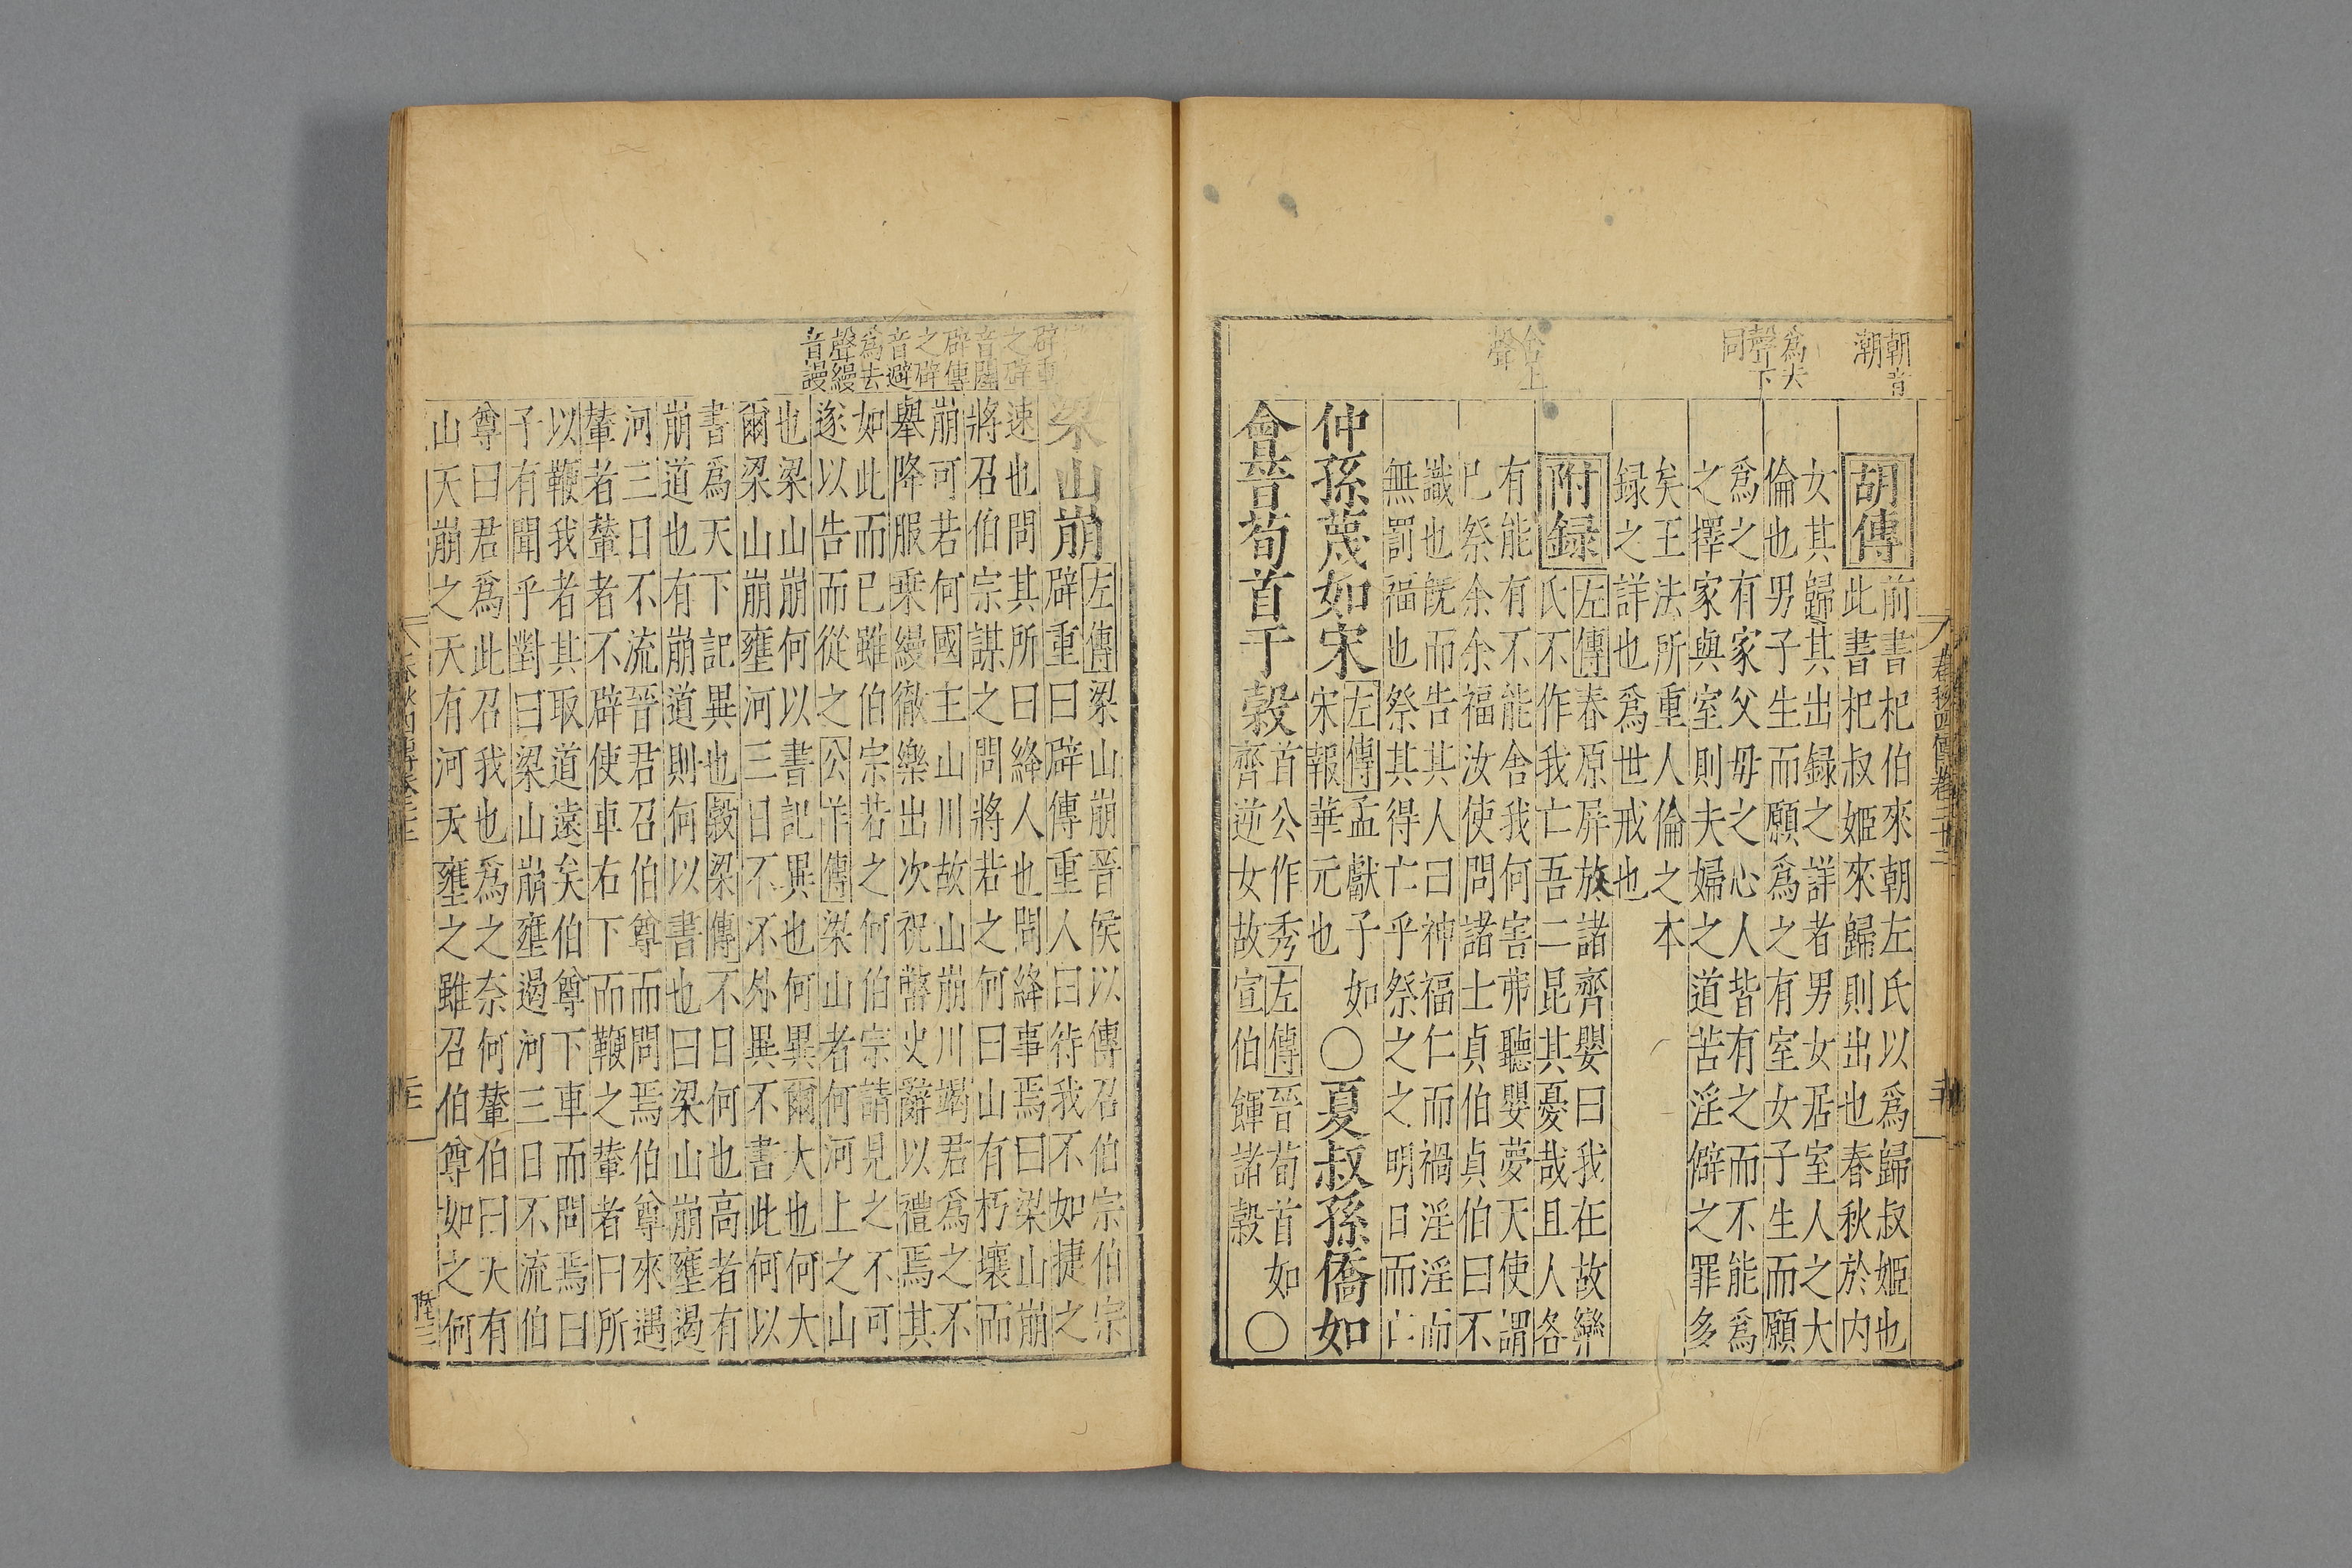 朝音
潮
爲去
聲下
同
舍上
聲
胡傳
前書杞伯來朝左氏以爲歸叔姬也
此書杞叔姬來歸則出也春秋於內
女其歸其出録之詳者男女居室人之大
倫也男子生而願爲之有室女子生而願
爲之有家父毋之心人皆有之而不能爲
之擇家與室則夫婦之道苦淫僻之罪多
矣王法所重人倫之本
録之詳也爲世戒也
附録
左傳春原屏放諸齊嬰曰我在故欒
氏不作我亡吾二昆其憂哉且人各
有能有不能舍我何害弗聽嬰夢天使謂
已祭余余福汝使問諸士貞伯貞伯曰不
識也旣而告其人曰神福仁而禍淫淫而
無罰福也祭其得亡乎祭之之明日而亡
仲孫蔑如宋
左傳孟獻子如
宋報華元也
○夏叔孫僑如
會晉荀首于穀
首公作秀左傳晉荀首如
齊逆女故宣伯餫諸穀
○
春秋四傳卷二十二
辟重
之辟
音闢
辟傳
之辟
音避
爲去
聲縵
音謾
梁山崩
左傳梁山崩晉侯以傳召伯宗伯宗
辟重曰辟傳重人曰待我不如捷之
速也問其所曰絳人也問絳事焉曰梁山崩
將召伯宗謀之問將若之何曰山有朽壤而
崩可若何國主山川故山崩川竭君爲之不
舉降服乘縵徹樂出次祝幣史辭以禮焉其
如此而已雖伯宗若之何伯宗請見之不可
遂以告而從之公羊傳梁山者何河上之山
也梁山崩何以書記異也何異爾大也何大
爾梁山崩壅河三日不㳅外異不書此何以
書爲天下記異也穀梁傳不日何也高者有
崩道也有崩道則何以書也曰梁山崩壅遏
河三日不流晉君召伯尊而問焉伯尊來遇
輦者輦者不辟使車右下而鞭之輦者曰所
以鞭我者其取道遠矣伯尊下車而問焉曰
子有聞乎對曰梁山崩壅遏河三日不流伯
尊曰君爲此召我也爲之奈何輦伯曰天有
山天崩之天有河天壅之雖召伯尊如之何